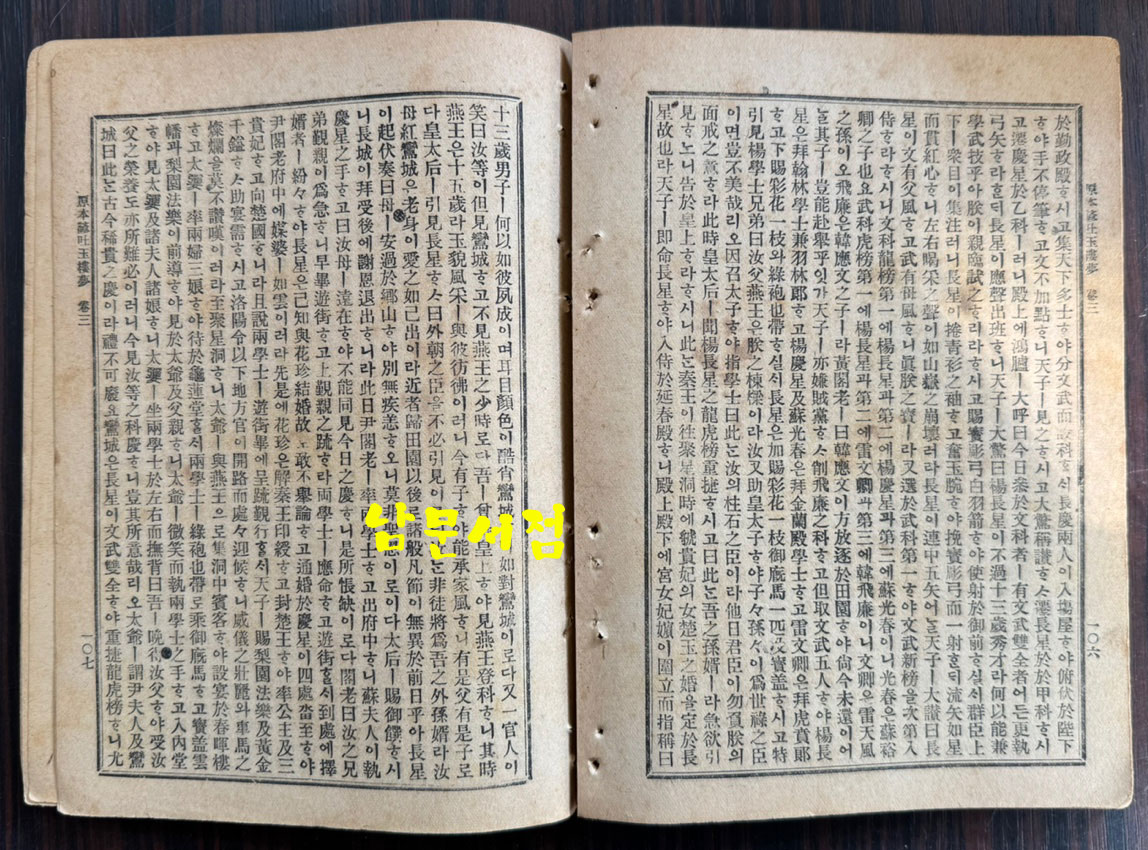 原本諺吐玉樓夢 卷三 一〇六
於勤政殿ᄒᆞ시고集天下多士ᄒᆞ야分文武而設科ᄒᆞ시니長慶兩人이入場屋ᄒᆞ야俯伏於陛下
ᄒᆞ야手不停筆ᄒᆞ고文不加點ᄒᆞ니天子ㅣ見之ᄒᆞ시고大驚稱讃ᄒᆞᄉᆞ選長星於甲科ᄒᆞ시
고選慶星於乙科ㅣ러니殿上에鴻臚ㅣ大呼曰今日參於文科者ㅣ有文武雙全者어든更執
弓矢ᄒᆞ라ᄒᆞ되長星이應聲出班ᄒᆞ니天子ㅣ大驚曰楊長星이不過十三歲秀才라何以能兼
學武技乎아朕이親臨試之ᄒᆞ리라ᄒᆞ시고賜寶彫弓白羽箭ᄒᆞ야使射於御前ᄒᆞ실ᄉᆡ群臣上
下ㅣ衆目이集注러니長星이捲靑衫之袖ᄒᆞ고奮玉腕ᄒᆞ야挽寶彫弓而一射ᄒᆞ되流矢如星
而貫紅心ᄒᆞ니左右喝采之聲이如山嶽之崩壞러라長星이連中五矢어ᄂᆞᆯ天子ㅣ大讃曰長
星이文有父風ᄒᆞ고武有母風ᄒᆞ니眞朕之寶ㅣ라又選於武科第一ᄒᆞ야文武新榜을次第入
侍ᄒᆞ라ᄒᆞ시니文科龍榜第一에楊長星과第二에楊慶星과第三에蘇光春이니光春은蘇裕
卿之子也요武科虎榜第一에楊長星과第二에雷文卿과第三에韓飛廉이니文卿은雷天風
之孫이오飛廉은韓應文之子ㅣ라黃閣老ㅣ曰韓應文이方放逐於田園ᄒᆞ야尙今未還이어
ᄂᆞᆯ其子ㅣ豈能赴擧乎잇가天子ㅣ亦嫌賊黨ᄒᆞᄉᆞ削飛廉之科ᄒᆞ고但取文武五人ᄒᆞ야楊長
星은拜翰林學士兼羽林郎ᄒᆞ고楊慶星及蘇光春은拜金蘭殿學士ᄒᆞ고雷文卿은拜虎賁郎
ᄒᆞ고下賜彩花一枝와綠袍也帶ᄒᆞ실ᄉᆡ長星은加賜彩花一枝御廐馬一匹及寶盖ᄒᆞ시고特
引見楊學士兄弟曰汝父燕王은朕之棟樑이라汝又助皇太子ᄒᆞ야子々孫々이爲世祿之臣
이면豈不美哉리오因召太子ᄒᆞ야指學士曰此ᄂᆞᆫ汝의柱石之臣이라他日君臣이勿負朕의
面戒之意ᄒᆞ라此時皇太后ㅣ聞楊長星之龍虎榜重捷ᄒᆞ시고曰此ᄂᆞᆫ吾之孫婿ㅣ라急欲引
見ᄒᆞ노니告於皇上ᄒᆞ라ᄒᆞ시니此ᄂᆞᆫ秦王이往聚星洞時에虢貴妃의女楚玉之婚을定於長
星故也ㅣ라天子ㅣ卽命長星ᄒᆞ야入侍於延春殿ᄒᆞ니殿上殿下에宮女妃嬪이圍立而指稱曰
十三歲男子ㅣ何以如彼夙成이며耳目顔色이酷肖鸞城如對鸞城이로다又一官人이
笑曰汝等이但見鸞城ᄒᆞ고不見燕王之少時로다吾ㅣ曾皇上ᄒᆞ야見燕王登科ᄒᆞ니其時
燕王은十五歲라玉貌風采ㅣ與彼彷彿이러니今有子ᄒᆞ야能承家風ᄒᆞ니有是父有是子로
다皇太后ㅣ引見長星ᄒᆞᄉᆞ曰外朝之臣을不必引見이ᄂᆞᆫ非徒將爲吾之外孫婿라汝
母紅鸞城은老身이愛之如己出이라近者歸田園以後로諸般凡節이無異於前日乎아長星
이起伏奏曰母ㅣ安過於鄕山ᄒᆞ야別無疾恙ᄒᆞ오니莫非聖恩이로이다太后ㅣ賜御饌ᄒᆞ시
니長城이拜受後에謝恩退出ᄒᆞ니라此日尹閣老ㅣ率兩學士ᄒᆞ고出府中ᄒᆞ니蘇夫人이執
慶星之手ᄒᆞ고曰汝母ㅣ遠在ᄒᆞ야不能同見今日之慶ᄒᆞ니是所悵缺이로다閣老曰汝之兄
弟覲親이爲急ᄒᆞ니早畢遊街ᄒᆞ고上覲親之疏ᄒᆞ라兩學士ㅣ應命ᄒᆞ고遊街ᄒᆞᆯᄉᆡ到處에擇
婿者ㅣ紛々ᄒᆞ야長星은已知與花珍結婚故로敢不擧論ᄒᆞ고通婚於慶星이四處沓至ᄒᆞ야
尹閣老府中에媒婆ㅣ如雲이러라先是에花珍은解秦王印綬ᄒᆞ고封楚王ᄒᆞ야率公主及三
貴妃ᄒᆞ고向楚國ᄒᆞ니라且說兩學士ㅣ遊街畢에呈疏覲行ᄒᆞᆯᄉᆡ天子ㅣ賜梨園法樂及黃金
千鎰ᄒᆞᄉᆞ助宴需ᄒᆞ시고洛陽令以下地方官이開路而處々迎候ᄒᆞ니威儀之壯麗와車馬之
燦爛을莫不讃嘆이러라至聚星洞ᄒᆞ니太爺ㅣ與燕王으로集洞中賓客ᄒᆞ야設宴於春暉樓
ᄒᆞ고太孁ㅣ率兩婦三娘ᄒᆞ야待於龜蓮堂ᄒᆞᆯᄉᆡ兩學士ㅣ綠袍也帶로乘御廐馬ᄒᆞ고寶盖雲
幡과梨園法樂이前導ᄒᆞ야見於太爺及父親ᄒᆞ니太爺ㅣ微笑而執兩學士之手ᄒᆞ고入內堂
ᄒᆞ야見太孁及諸夫人諸娘ᄒᆞ니太孁ㅣ坐兩學士於左右而撫背曰吾ㅣ晩得汝父ᄒᆞ야受汝
父之榮養도亦所難必이러니今見汝等之科慶ᄒᆞ니豈其所意哉리오太爺ㅣ謂尹夫人及鸞
城曰此ᄂᆞᆫ古今稀貴之慶이라禮不可廢요鸞城은長星이文武雙全ᄒᆞ야重捷龍虎榜ᄒᆞ니尤
原本諺吐玉樓夢 卷三 一〇七
남문서점